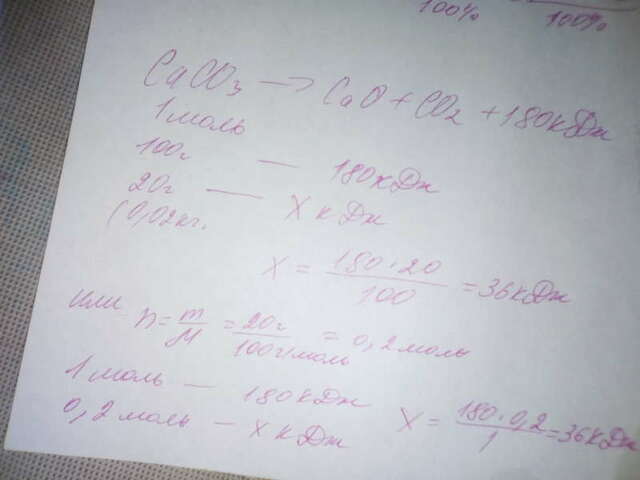 100% 100%
CaCO₃ → CaO + CO₂ + 180кДж
1моль
100г — 180кДж
20г — X кДж
(0,02кг.
X = 180·20 / 100 = 36кДж
или n = m/M = 20г / 100г/моль = 0,2 моль
1 моль — 180кДж
0,2 моль — X кДж X = 180·0,2 / 1 = 36кДж